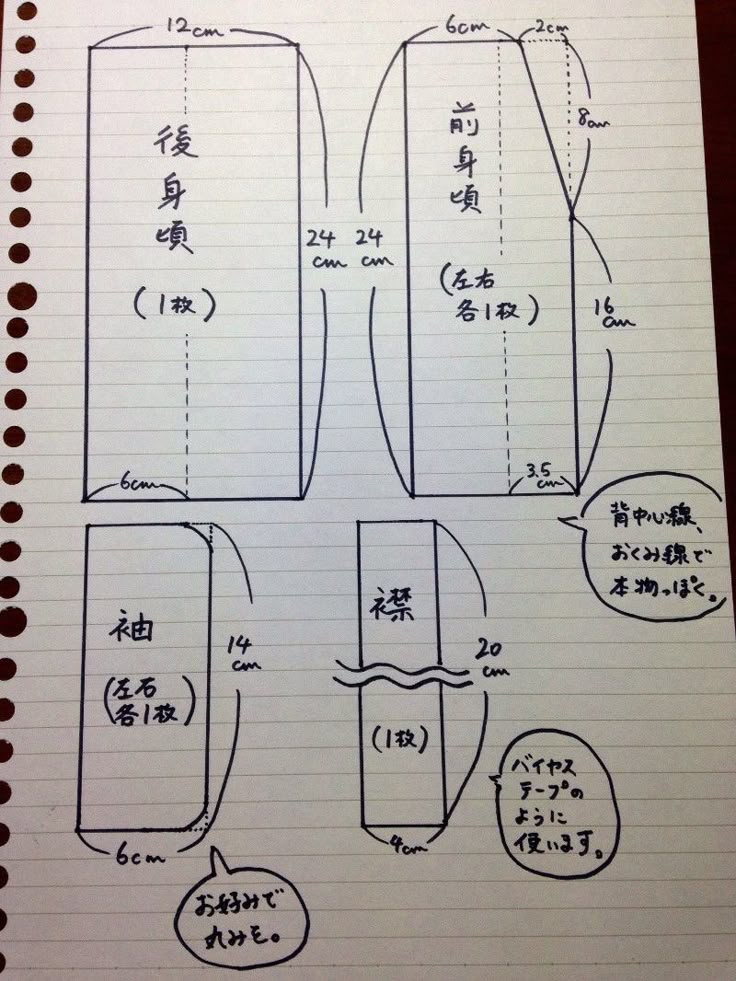 12cm
後身頃
(1枚)
24
cm
6cm
6cm
2cm
8cm
前身頃
(左右
各1枚)
24
cm
16
cm
3.5
cm
背中心線、
おくみ線で
本物っぽく。
袖
(左右
各1枚)
14
cm
6cm
お好みで
丸みを。
襟
(1枚)
20
cm
4cm
バイヤス
テープの
ように
使います。